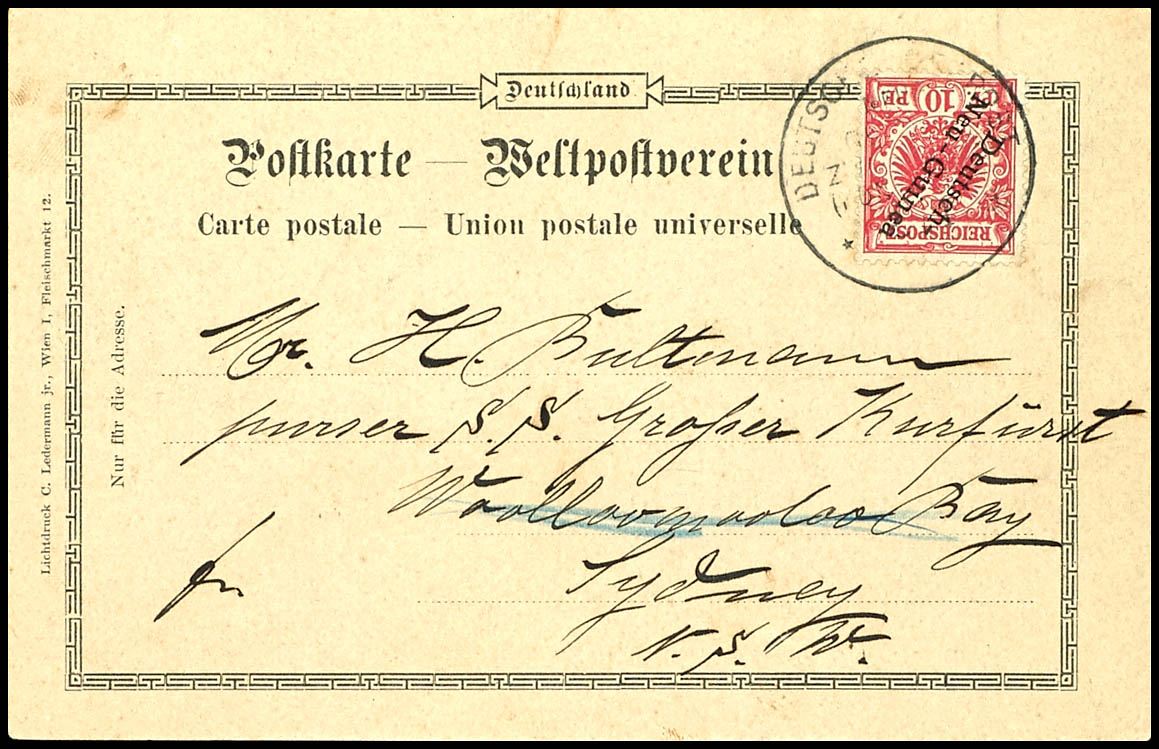 Deutschland
Postkarte — Weltpostverein
Carte postale — Union postale universelle
REICHSPOST
10
Deutsch-
Neu-Guinea
Mr. H. Bultmann
purser S.S. Großer Kurfürst
Woolloomooloo Bay
Sydney
N.S.W.
Nur für die Adresse.
Lichtdruck C. Ledermann jr., Wien I, Fleischmarkt 12.